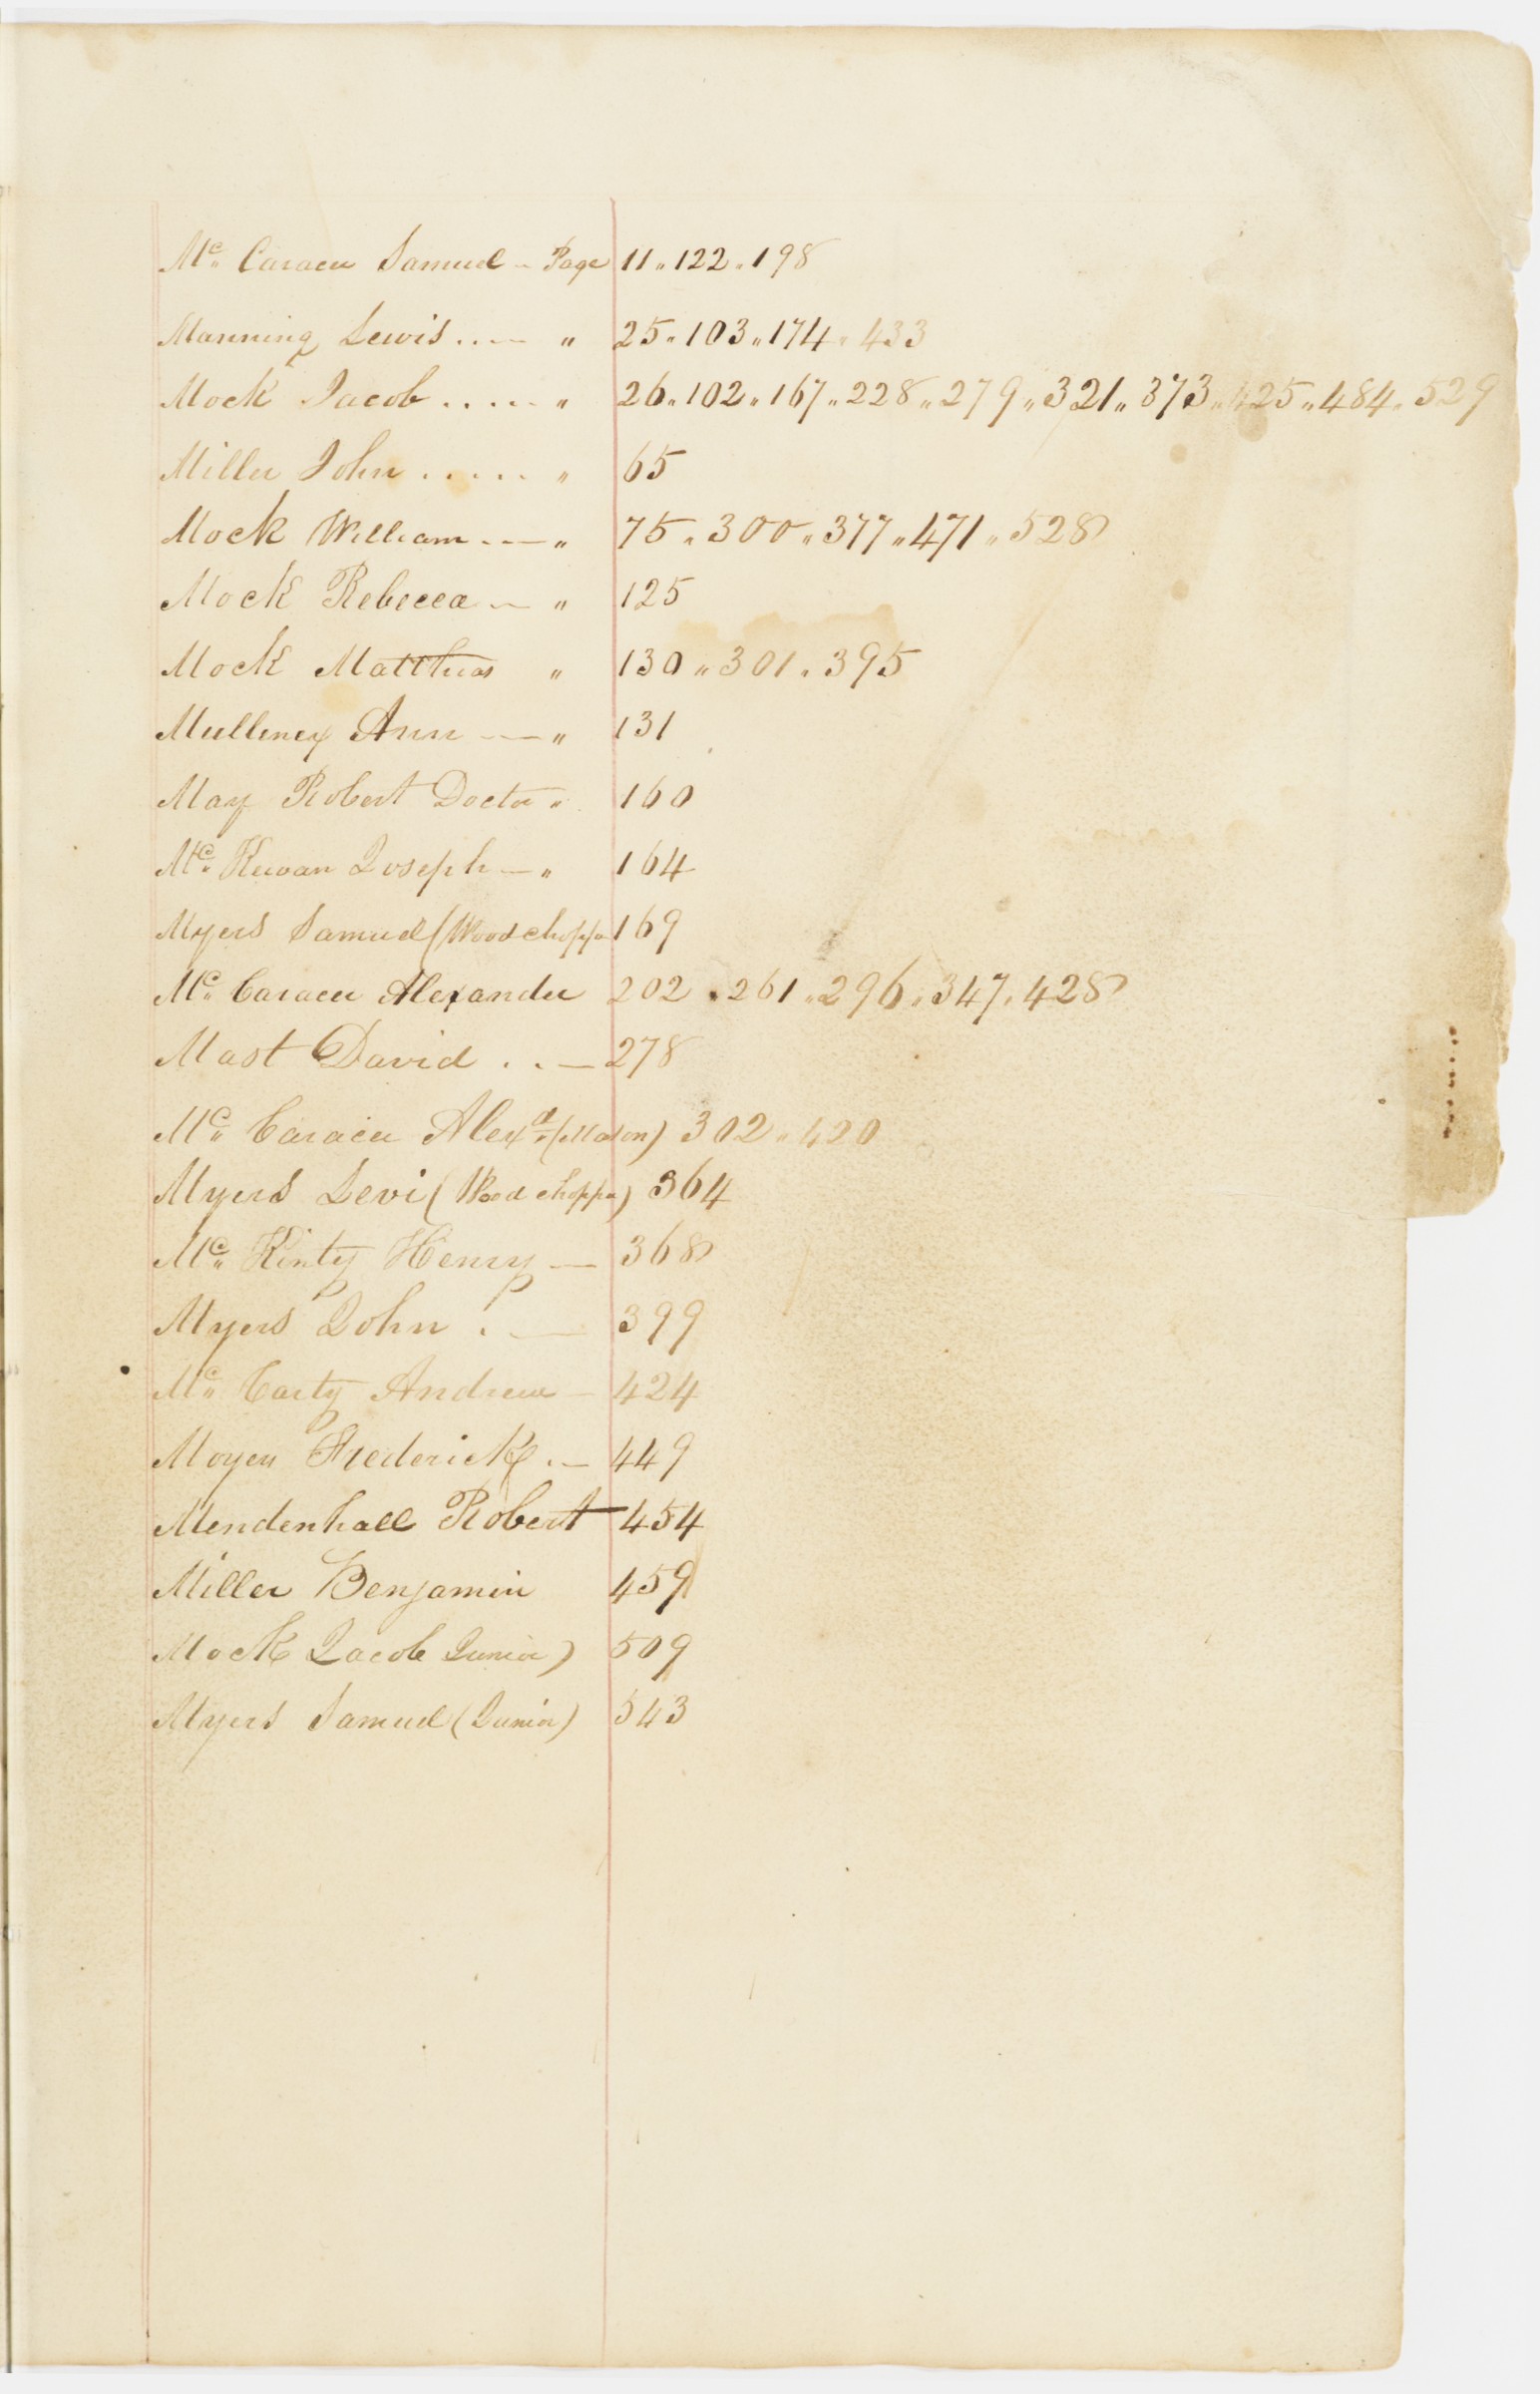 Mc. Caracer Samuel - Page 11 " 122 " 198
Manning Lewis .. — " 25 " 103 " 174 " 433
Mock Jacob ..... " 26 " 102 " 167 " 228 " 279 " 321 " 373 " 425 " 484 " 529
Miller John ..... " 65
Mock William .. — " 75 " 300 " 377 " 471 " 528
Mock Rebecca — " 125
Mock Matthias " 130 " 301 " 395
Mulleney Ann — " 131
May Robert Doctor " 160
Mc. Kewan Joseph — " 164
Myers Samuel (Wood chopper 169
Mc. Caracer Alexander 202 " 261 " 296 " 347 " 428
Mast David .. — 278
Mc. Caracer Alexd. (Mason) 302 " 420
Myers Levi (Wood chopper) 364
Mc. Kinty Henry — 368
Myers John . — 399
Mc. Carty Andrew — 424
Moyer Frederick . — 449
Mendenhall Robert 454
Miller Benjamin 459
Mock Jacob Junior) 509
Myers Samuel (Junior) 543